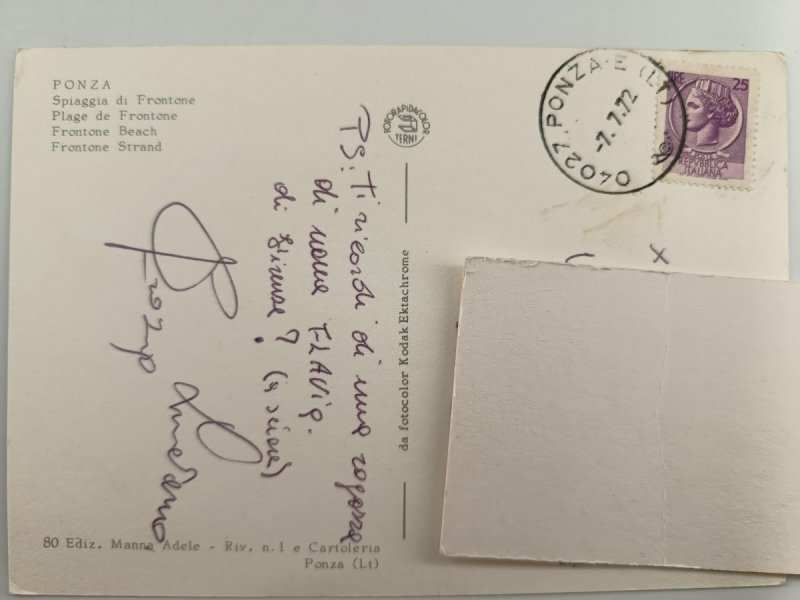 PONZA
Spiaggia di Frontone
Plage de Frontone
Frontone Beach
Frontone Strand
FOTORAPIDACOLOR
TERNI
04027 PONZA-E (LT)
-7.7.72
LIRE 25
POSTE
REPVBBLICA
ITALIANA
PS: Ti ricordi di una ragazza
di nome FLAVIA.
di Firenze? (a sciare)
da fotocolor Kodak Ektachrome
80 Ediz. Manna Adele - Riv. n. 1 e Cartoleria
Ponza (Lt)